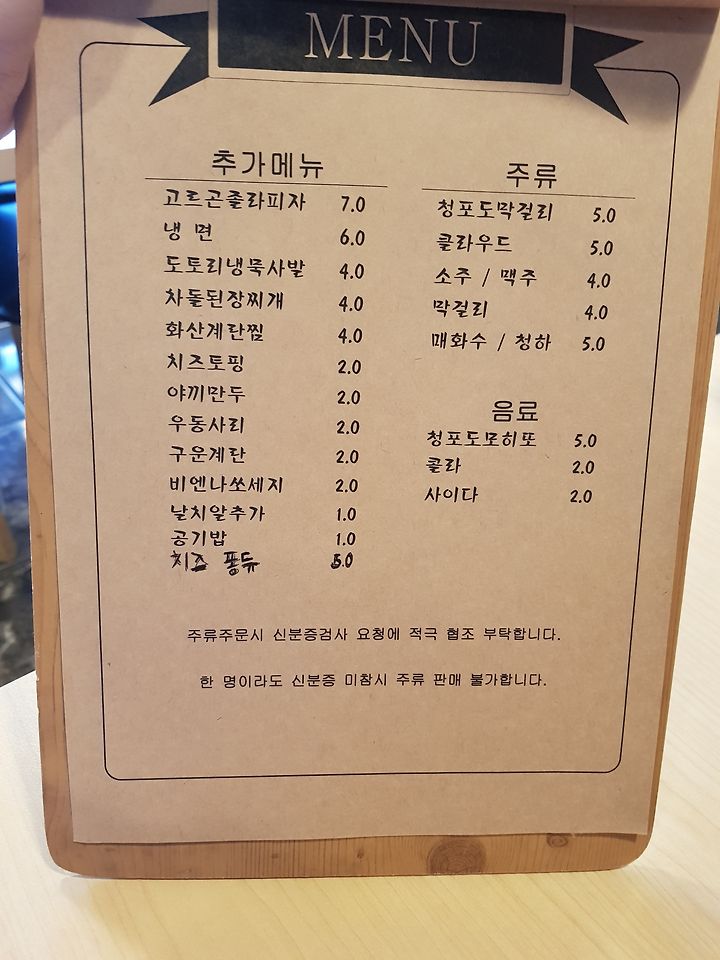 MENU
추가메뉴
고르곤졸라피자 7.0
냉 면 6.0
도토리냉묵사발 4.0
차돌된장찌개 4.0
화산계란찜 4.0
치즈토핑 2.0
야끼만두 2.0
우동사리 2.0
구운계란 2.0
비엔나쏘세지 2.0
날치알추가 1.0
공기밥 1.0
치즈 퐁듀 5.0
주류
청포도막걸리 5.0
클라우드 5.0
소주 / 맥주 4.0
막걸리 4.0
매화수 / 청하 5.0
음료
청포도모히또 5.0
콜라 2.0
사이다 2.0
주류주문시 신분증검사 요청에 적극 협조 부탁합니다.
한 명이라도 신분증 미참시 주류 판매 불가합니다.